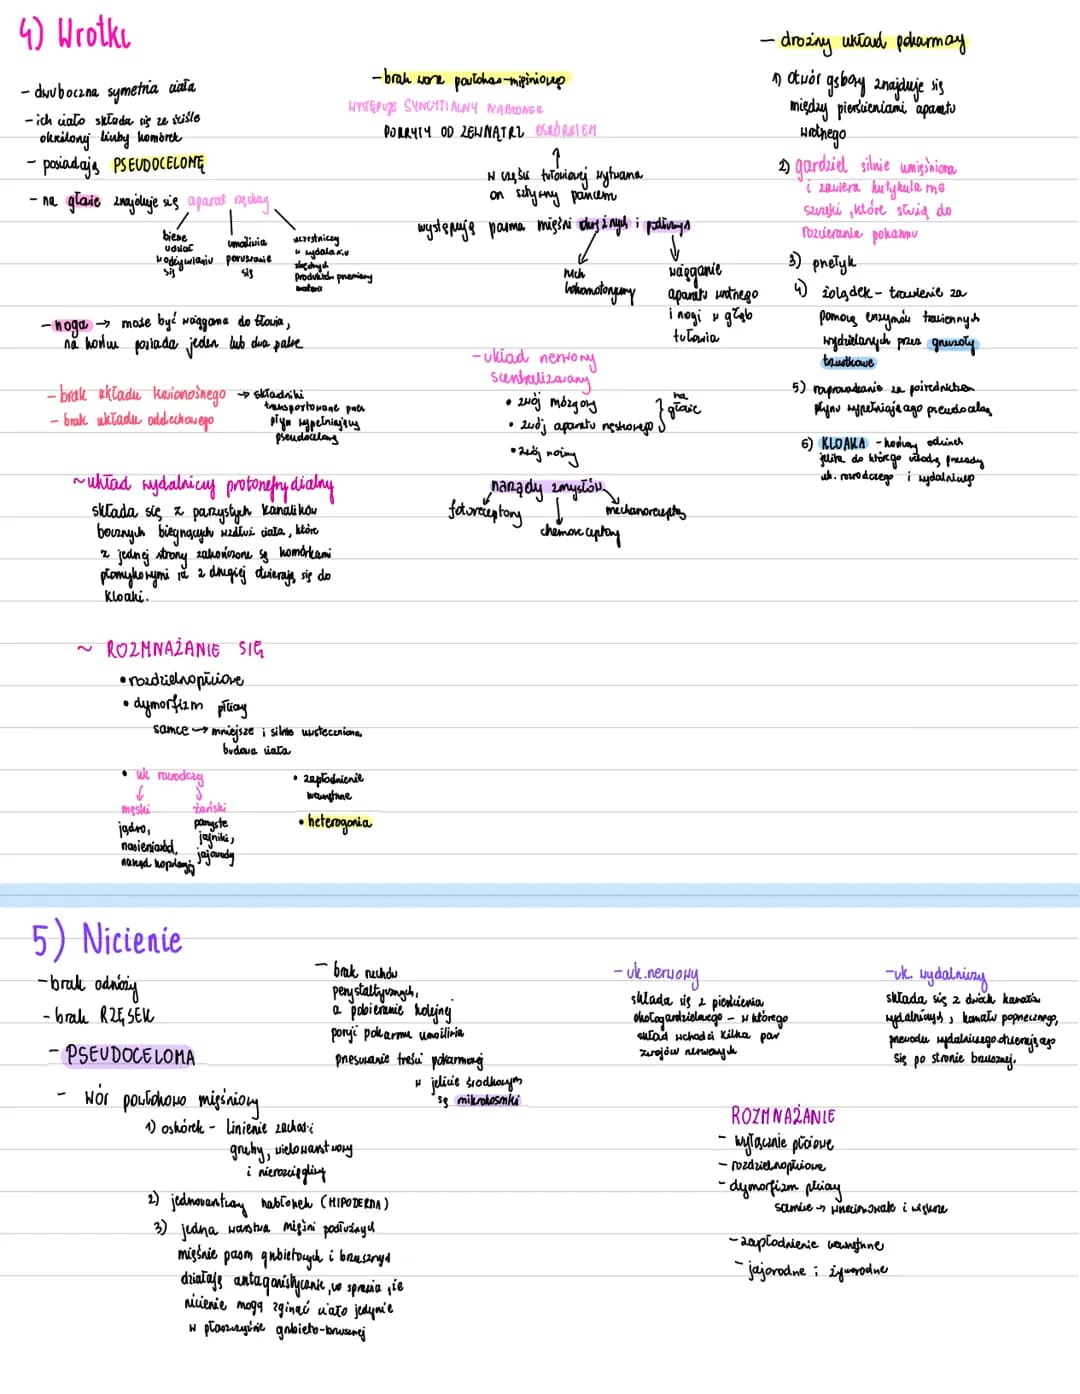 4) Wrotki
- dwuboczna symetria ciała
- ich ciało składa się ze ściśle
określonej liczby komórek
- posiadają PSEUDOCELOMĘ
- na głowie znajduje się aparat rzęskowy
bierze
udział
w odżywianiu
się
umożliwia
poruszanie
się
uczestniczy
w wydalaniu
zbędnych
produktów przemiany
materii
- noga → może być wciągana do tłowia,
na końcu posiada jeden lub dwa palce
- brak układu krwionośnego → składniki
transportowane przez
płyn wypełniający
pseudocelomę
- brak układu oddechowego
~ układ wydalniczy protonefrydialny
składa się z parzystych kanalików
bocznych biegnących wzdłuż ciała, które
z jednej strony zakończone są komórkami
płomykowymi za z drugiej otwierają się do
kloaki.
~ ROZMNAŻANIE SIĘ
• rozdzielnopłciowe
• dymorfizm płciowy
samce → mniejsze i silnie uwsteczniona
budowa ciała
• uk rozrodczy
męski
jądro,
nasieniowód,
narząd kopulacyjny
żeński
parzyste
jajniki,
jajowody
• zapłodnienie
wewnętrzne
• heterogonia
- brak wora powłokowo-mięśniowego
WYSTĘPUJE SYNCYTIALNY NABŁONEK
POKRYTY OD ZEWNĄTRZ OSKÓRKIEM
w części tułowiowej wytwarza
on sztywny pancerz
występują pasma mięśni okrężnych i podłużnych
ruch
lokomotoryczny
wciąganie
aparatu wrotnego
i nogi w głąb
tułowia
- układ nerwowy
scentralizowany
• zwój mózgowy
• zwój aparatu rzęskowego
na
głowie
• zwój nożny
narządy zmysłów
fotoreceptory
chemoreceptory
mechanoreceptory
- drożny układ pokarmowy
1) otwór gębowy znajduje się
między pierścieniami aparatu
wrotnego
2) gardziel silnie umięśniona
i zawiera kutykularne
szczęki, które służą do
rozcierania pokarmu
3) przełyk
4) żołądek - trawienie za
pomocą enzymów trawiennych
wydzielanych przez gruczoły
trzustkowe
5) rozprowadzanie za pośrednictwem
płynu wypełniającego pseudocelomę
6) KLOAKA - końcowy odcinek
jelita do którego uchodzą przewody
uk. rozrodczego i wydalniczego
5) Nicienie
- brak odnóży
- brak RZĘSEK
- PSEUDOCELOMA
- wór powłokowo mięśniowy
1) oskórek - linienie zachodzi
gruby, wielowarstwowy
i nierozciągliwy
2) jednowarstwowy nabłonek (HIPODERMA)
3) jedna warstwa mięśni podłużnych
mięśnie pasm grzbietowych i brzusznych
działają antagonistycznie, co sprawia, że
nicienie mogą zginać ciało jedynie
w płaszczyźnie grzbieto-brzusznej
- brak ruchów
perystaltycznych,
a pobieranie kolejnej
porcji pokarmu umożliwia
przesuwanie treści pokarmowej
w jelicie środkowym
są mikrokosmki
- uk. nerwowy
składa się z pierścienia
okołogardzielowego - w którego
skład wchodzi kilka par
zwojów nerwowych
- uk. wydalniczy
składa się z dwóch kanałów
wydalniczych, kanału poprzecznego,
przewodu wydalniczego otwierającego
się po stronie brzusznej.
ROZMNAŻANIE
- wyłącznie płciowe
- rozdzielnopłciowe
- dymorfizm płciowy
samice → i większe
- zapłodnienie wewnętrzne
- jajorodne i żyworodne